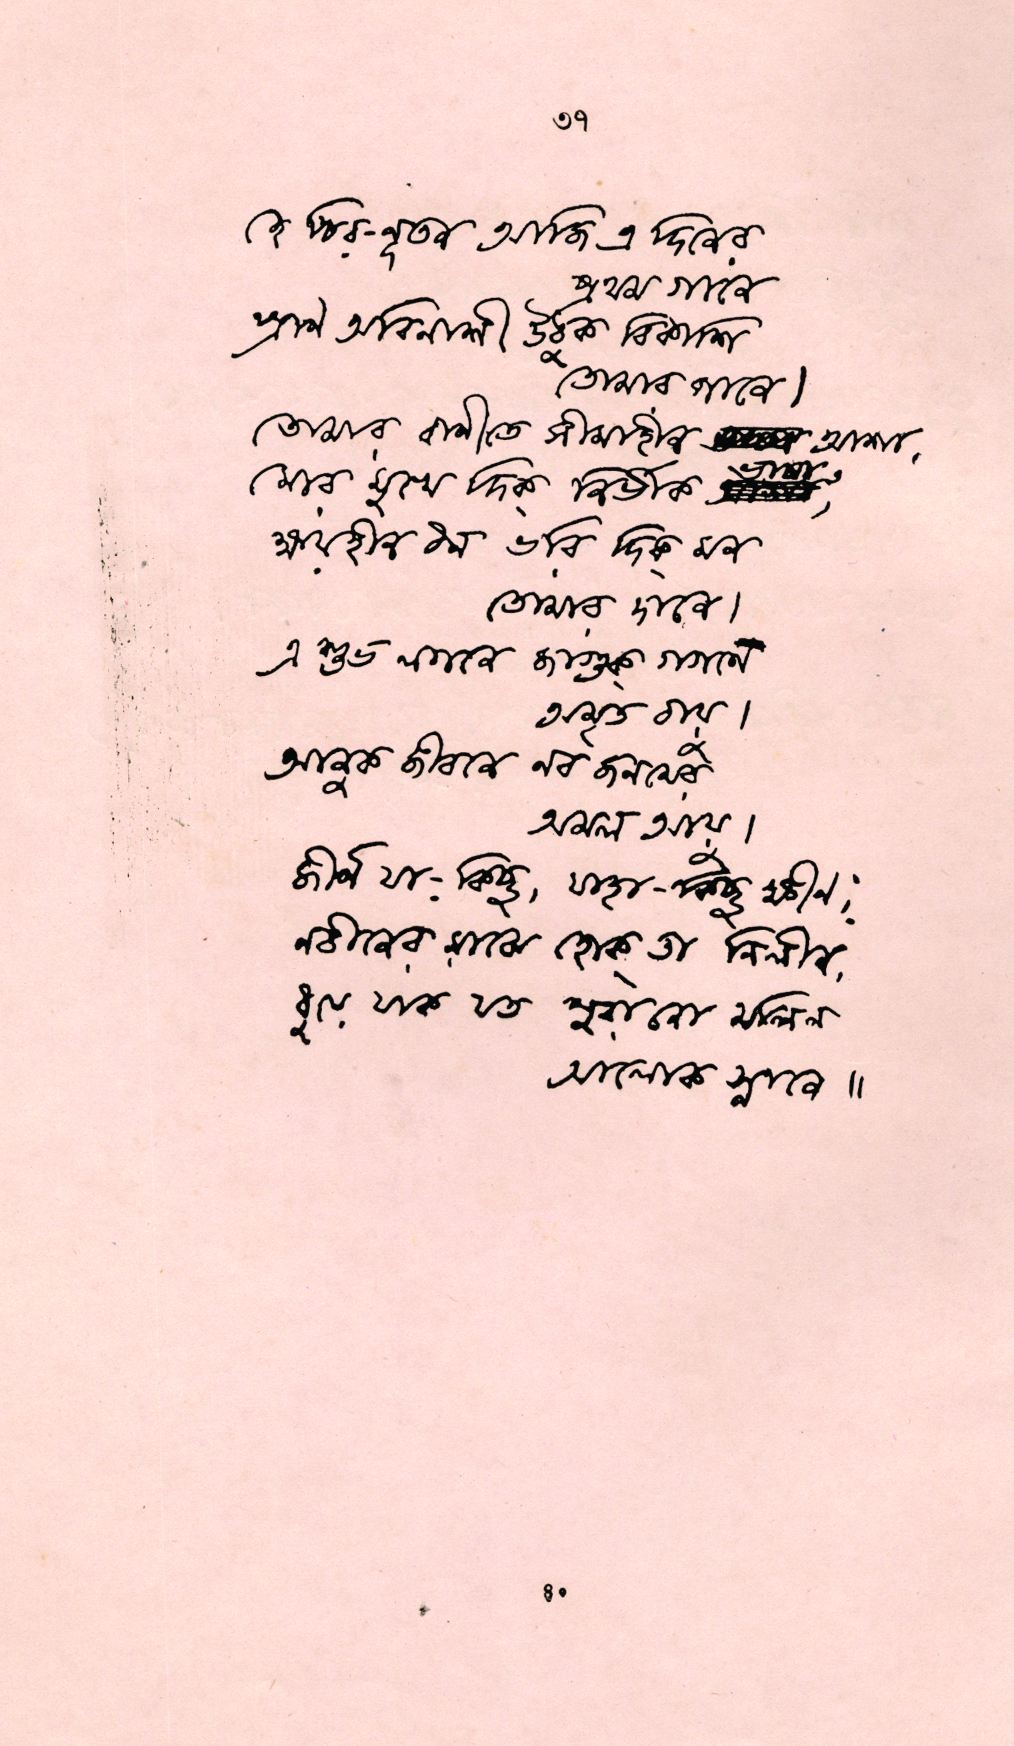 ৩৭
হে চির-নূতন আজি এ দিনের
প্রথম গানে
প্রাণ অবিনাশী উঠুক বিকাশি
তোমার পানে।
তোমার বাণীতে সীমাহীন আশা,
মোর মুখে দিক্ নির্ভীক ভাষা,
ক্ষয়হীন ধন ভরি দিক্ মন
তোমার দানে।
এ শুভ লগনে জাগুক্ গগনে
অমৃত বায়ু।
আনুক জীবনে নব জনমের
অমল আয়ু।
জীর্ণ যা-কিছু, যাহা-কিছু ক্ষীণ,
নবীনের মাঝে হোক্ তা বিলীন,
ধুয়ে যাক যত পুরানো মলিন
আলোক স্নানে॥
৪০